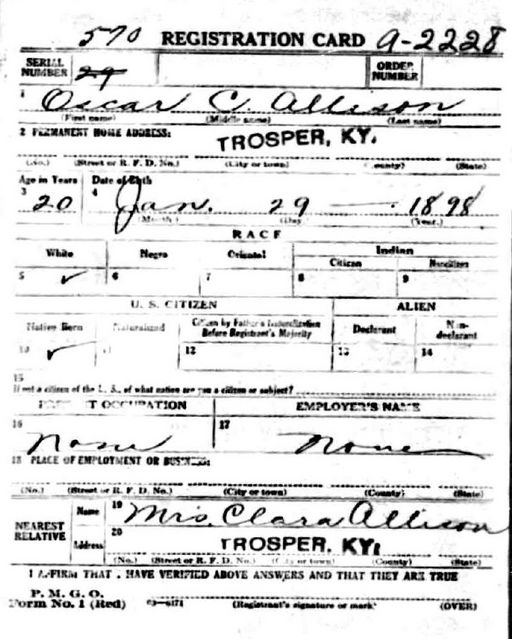 570 REGISTRATION CARD A-2228
SERIAL NUMBER 29 ORDER NUMBER
1 Oscar C. Allison
(First name) (Middle name) (Last name)
2 PERMANENT HOME ADDRESS: TROSPER, KY.
(No.) (Street or R. F. D. No.) (City or town) (County) (State)
Age in Years Date of Birth
3 20 4 Jan. 29 1898
(Month) (Day) (Year)
RACE
White Negro Oriental Indian
Citizen Noncitizen
5 ✓ 6 7 8 9
U. S. CITIZEN ALIEN
Native Born Naturalized Citizen by Father's Naturalization Before Registrant's Majority Declarant Non-declarant
10 ✓ 11 12 13 14
15
If not a citizen of the U. S., of what nation are you a citizen or subject?
PRESENT OCCUPATION EMPLOYER'S NAME
16 None 17 None
18 PLACE OF EMPLOYMENT OR BUSINESS:
(No.) (Street or R. F. D. No.) (City or town) (County) (State)
NEAREST RELATIVE Name 19 Mrs. Clara Allison
Address 20 TROSPER, KY.
(No.) (Street or R. F. D. No.) (City or town) (County) (State)
I AFFIRM THAT I HAVE VERIFIED ABOVE ANSWERS AND THAT THEY ARE TRUE
P. M. G. O.
Form No. 1 (Red) 03-6171 (Registrant's signature or mark) (OVER)